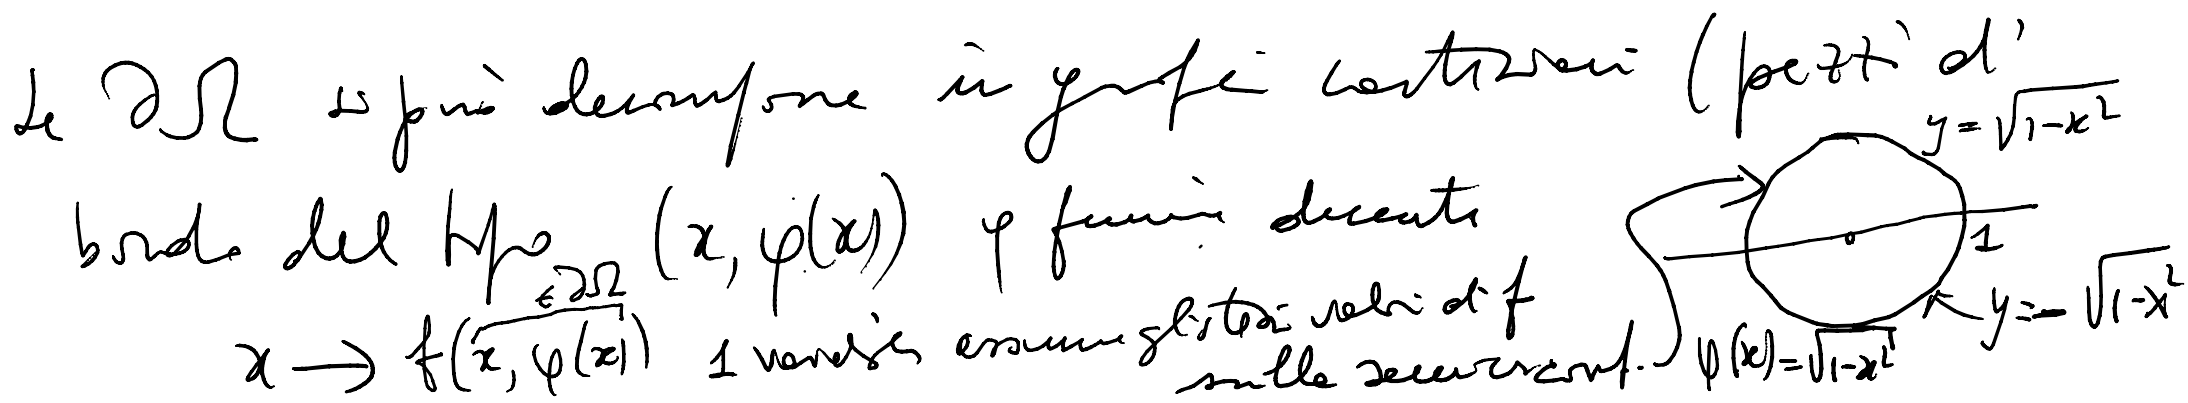 Se ∂Ω si può decomporre in grafici cartesiani (pezzi di
y = √(1-x²)
bordo del tipo (x, φ(x)) φ funzione decente
∈ ∂Ω
1
y = -√(1-x²)
x → f(x, φ(x)) 1 variabile assume gli stessi valori di f
sulla semicirconf.
φ(x) = √(1-x²)